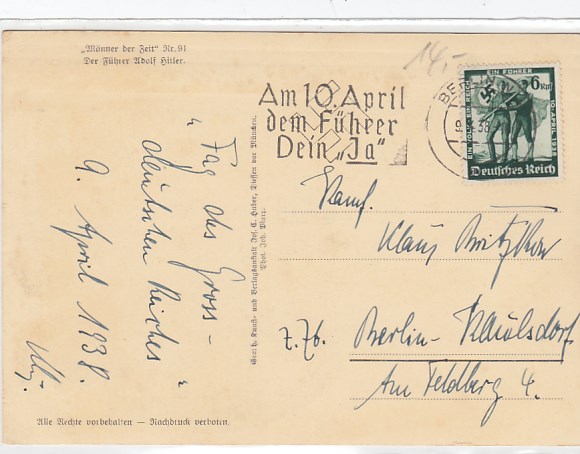 „Männer der Zeit“ Nr. 91
Der Führer Adolf Hitler.
14,-
Am 10. April
dem Führer
Dein „Ja“
BERLIN
EIN FÜHRER
6 Rpf
EIN VOLK EIN REICH
10. APRIL 1938
Deutsches Reich
„Tag des Gross-
deutschen Reiches“
9. April 1938.
Kunst- und Verlagsanstalt Jos. C. Huber, Diessen vor München.
Phot. Joh.
Klaus
z. Zb.
Berlin-Kaulsdorf
Am Feldberg 4.
Alle Rechte vorbehalten — Nachdruck verboten.